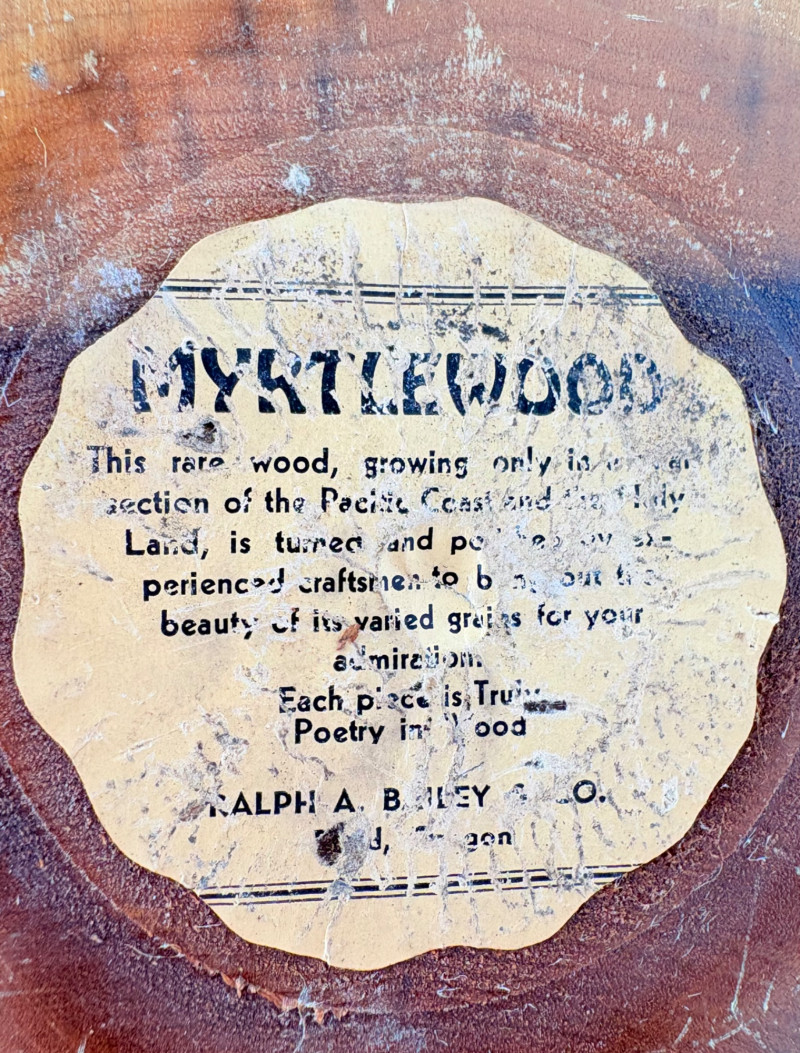 MYRTLEWOOD
This rare wood, growing only in
section of the Pacific Coast and the Holy
Land, is turned and polished by ex-
perienced craftsmen to bring out the
beauty of its varied grains for your
admiration.
Each piece is Truly
Poetry in Wood
RALPH A. BAILEY & CO.
Oregon